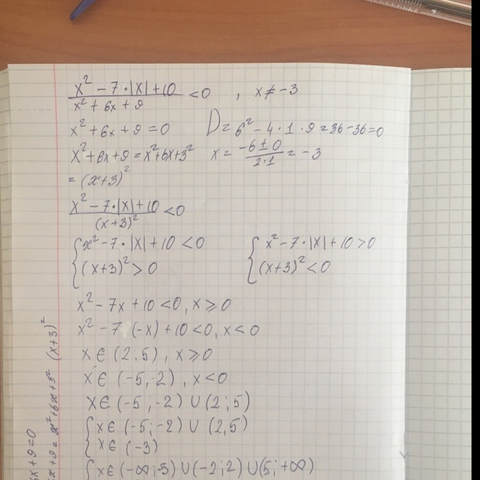 x² - 7·|x| + 10 / x² + 6x + 9 < 0 , x ≠ -3
x² + 6x + 9 = 0 D = 6² - 4·1·9 = 36 - 36 = 0
x² + 6x + 9 = x² + 6x + 3² x = -6 ± 0 / 2·1 = -3
= (x+3)²
x² - 7·|x| + 10 / (x+3)² < 0
{ x² - 7·|x| + 10 < 0 { x² - 7·|x| + 10 > 0
(x+3)² > 0 (x+3)² < 0
x² - 7x + 10 < 0, x ≥ 0
x² - 7·(-x) + 10 < 0, x < 0
x ∈ (2;5), x ≥ 0
x ∈ (-5,-2), x < 0
x ∈ (-5,-2) ∪ (2;5)
{ x ∈ (-5;-2) ∪ (2,5)
x ∈ (-3)
{ x ∈ (-∞;-5) ∪ (-2;2) ∪ (5;+∞)
6x + 9 = 0
(x+3)²